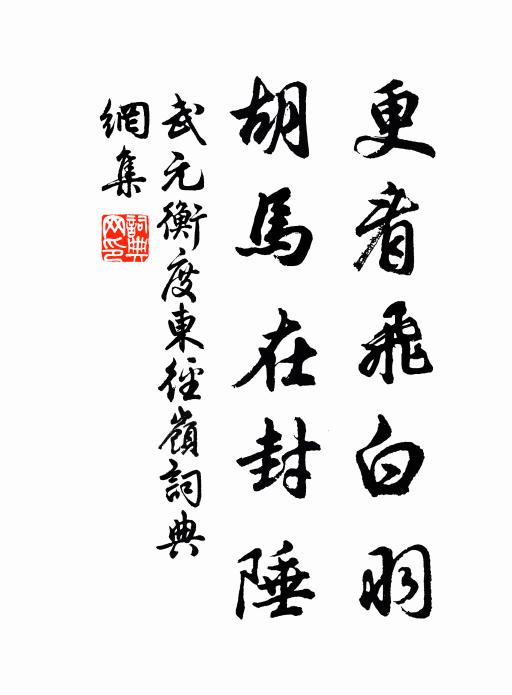 更看飛白羽
胡馬在封陲
武元衡度東徑嶺詞典
網集
詞典
网印